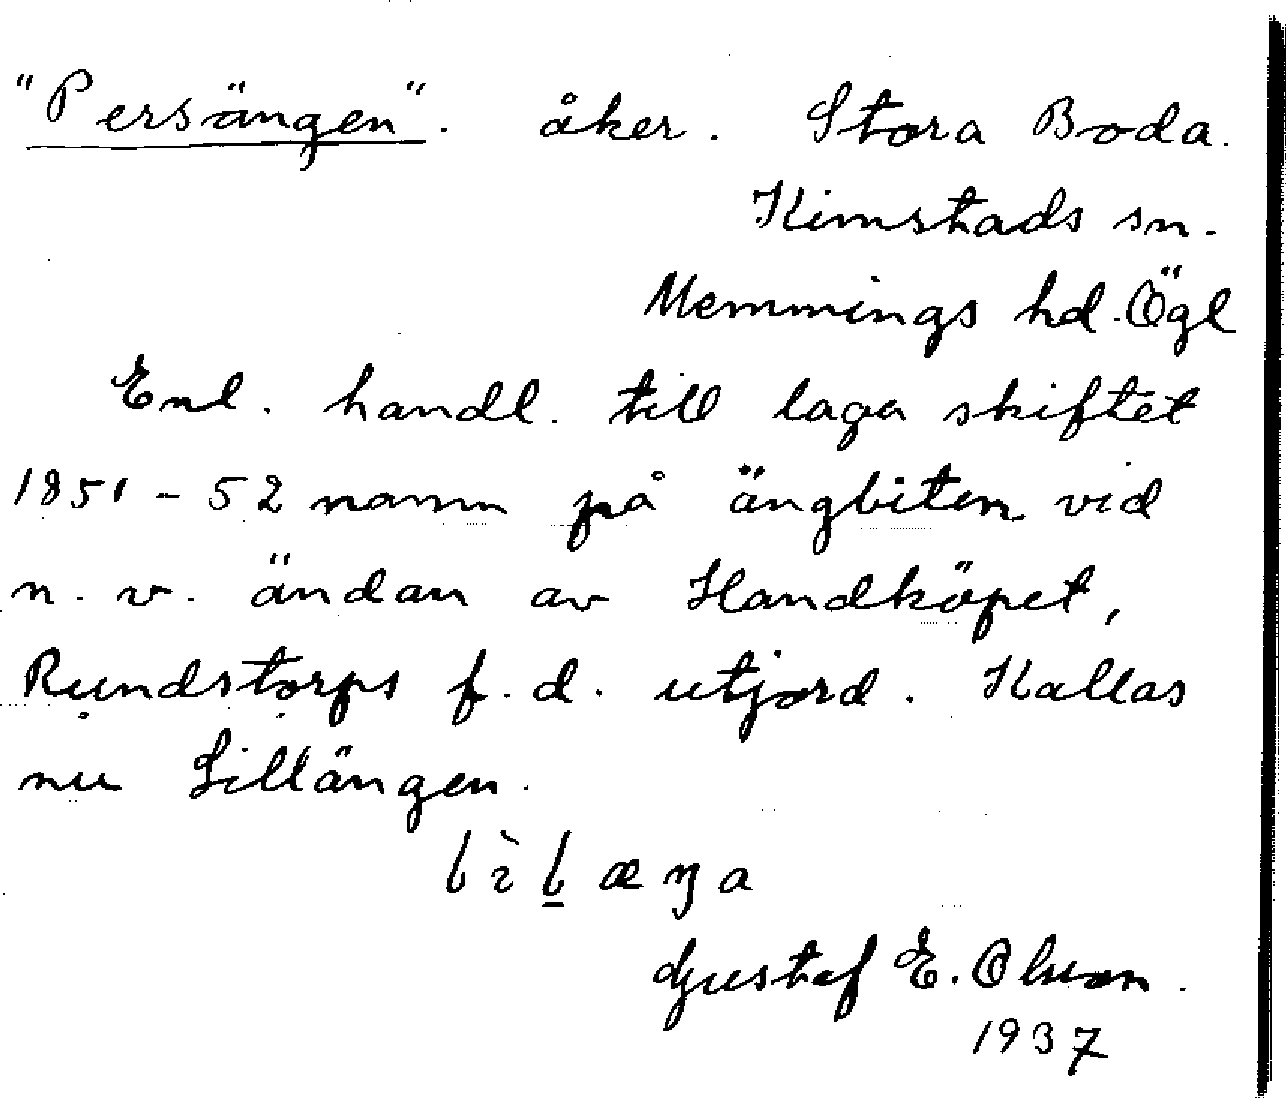 "Persängen". åker. Stora Boda.
Kimstads sn.
Memmings hd. Ögl
Enl. handl. till laga skiftet
1851-52 namn på ängbiten vid
n. v. ändan av Handköpet,
Rundstorps f. d. utjord. Kallas
nu Lillängen.
Gustaf E. Olsson.
1937